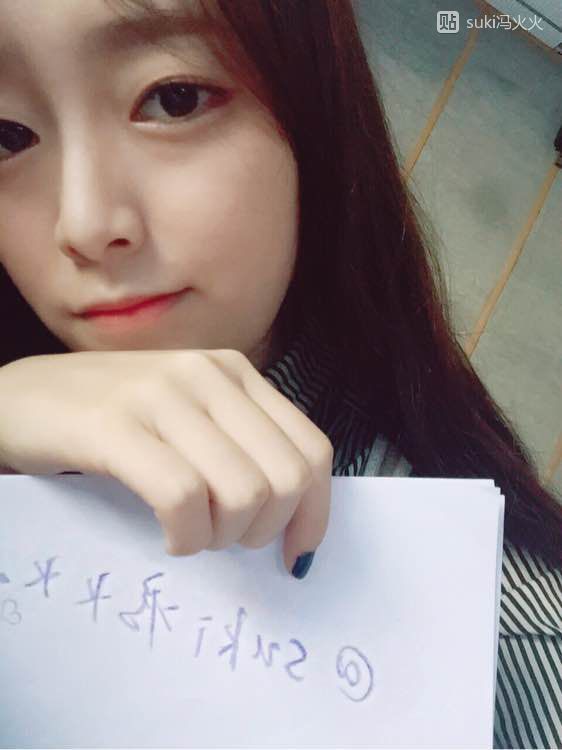 贴 suki冯火火
@suki冯火火